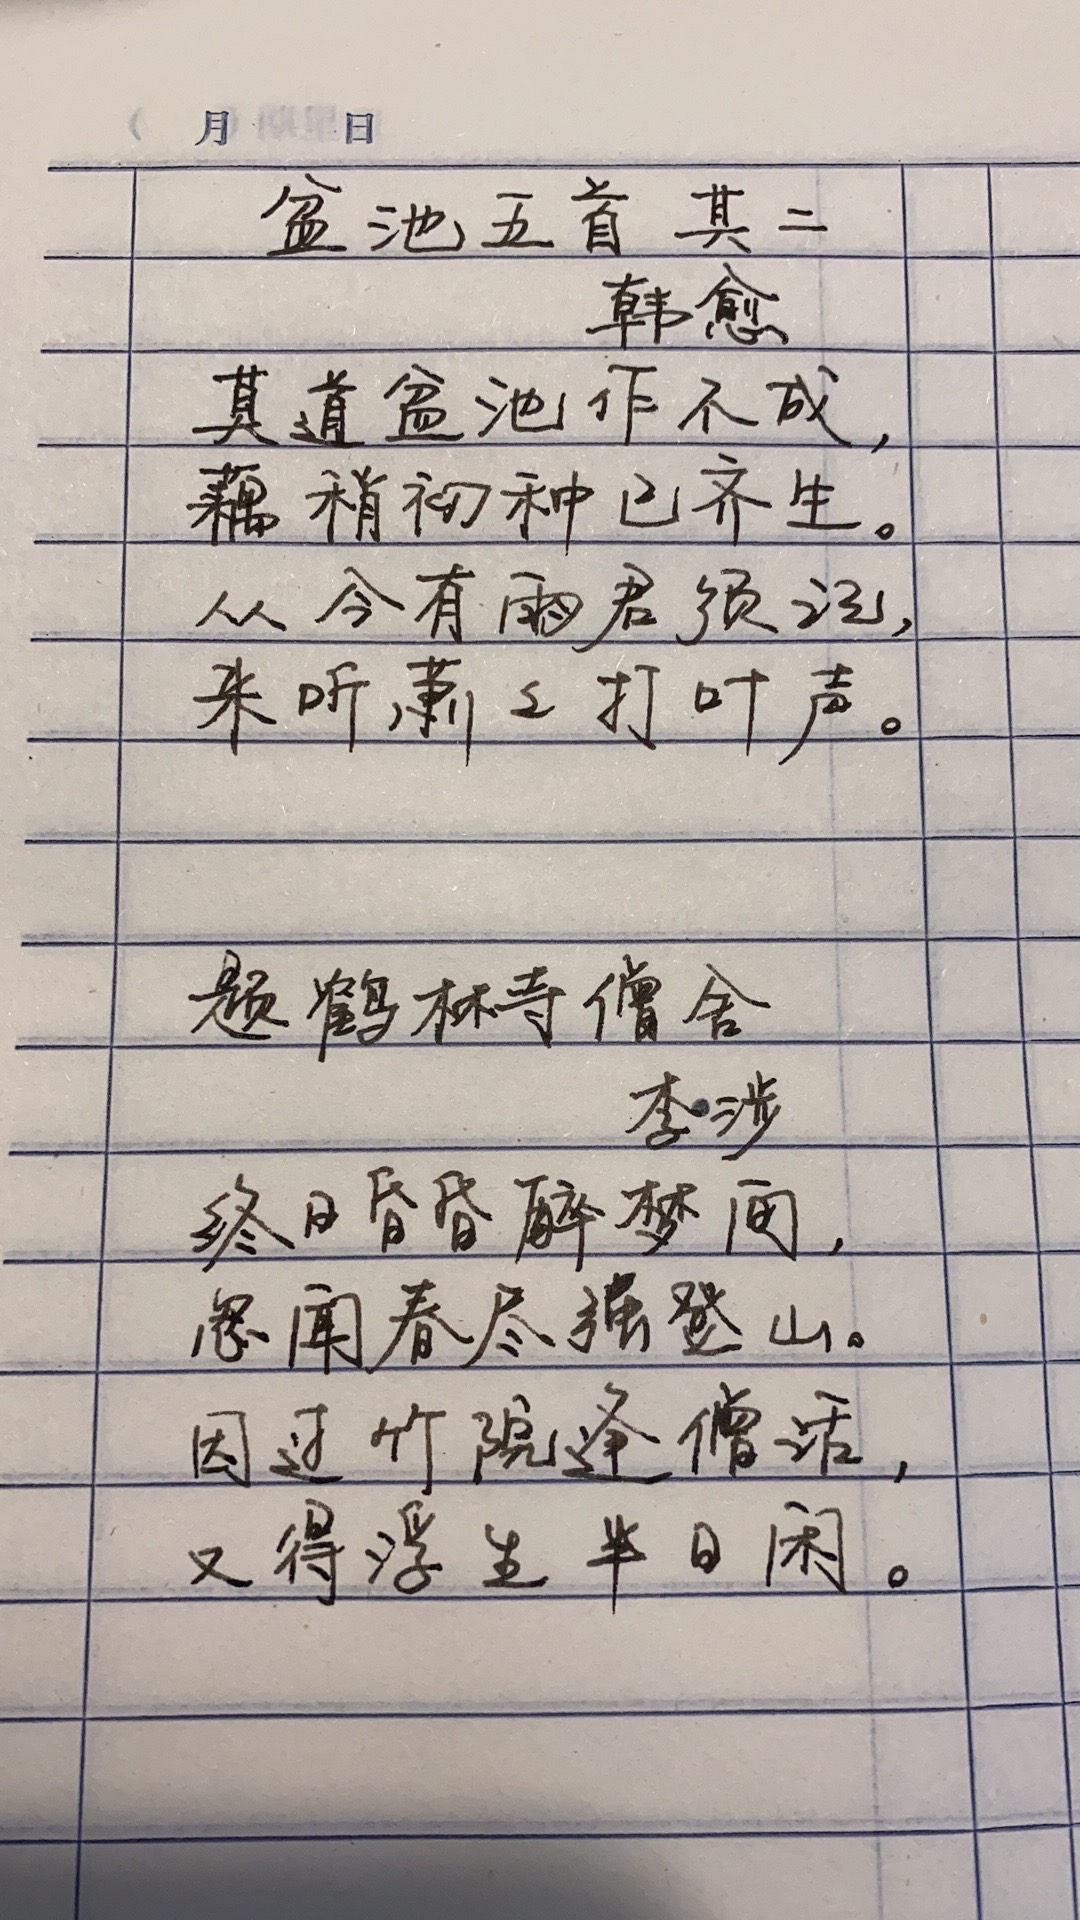 月 日
盆池五首 其二
韩愈
莫道盆池作不成，
藕稍初种已齐生。
从今有雨君须记，
来听萧々打叶声。
题鹤林寺僧舍
李涉
终日昏昏醉梦间，
忽闻春尽强登山。
因过竹院逢僧话，
又得浮生半日闲。